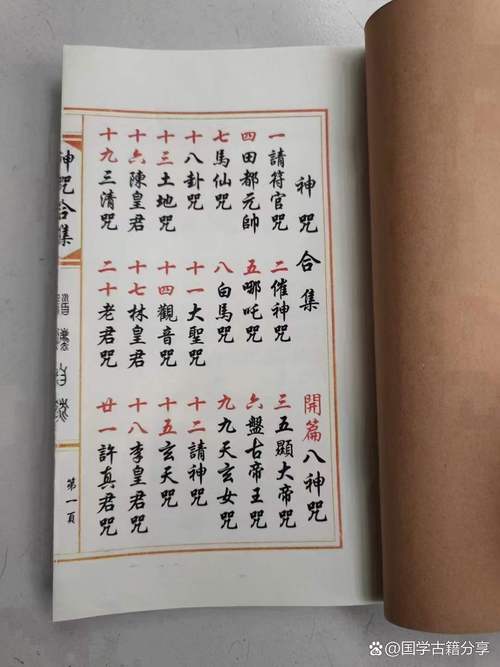 神咒合集
開篇八神咒
一請符官咒
二催神咒
三五顯大帝咒
四田都元帥
五哪吒咒
六盤古帝王咒
七馬仙咒
八白馬咒
九九天玄女咒
十八卦咒
十一大聖咒
十二請神咒
十三土地咒
十四觀音咒
十五玄天咒
十六陳皇君
十七林皇君
十八李皇君咒
十九三清咒
二十老君咒
廿一許真君咒
神咒合集
第一頁
@国学古籍分享